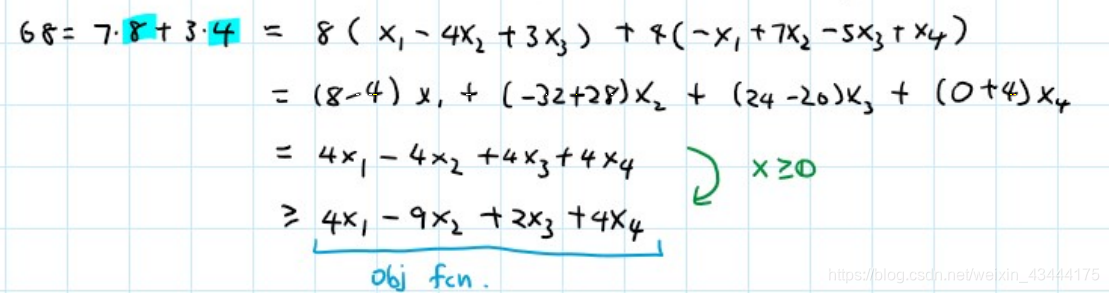 68 = 7·8 + 3·4 = 8 ( x₁ - 4x₂ + 3x₃ ) + 4(-x₁ + 7x₂ - 5x₃ + x₄)
= (8-4) x₁ + (-32+28)x₂ + (24-20)x₃ + (0+4)x₄
= 4x₁ - 4x₂ + 4x₃ + 4x₄ x ≥ 0
≥ 4x₁ - 9x₂ + 2x₃ + 4x₄
Obj fcn.
https://blog.csdn.net/weixin_43444175